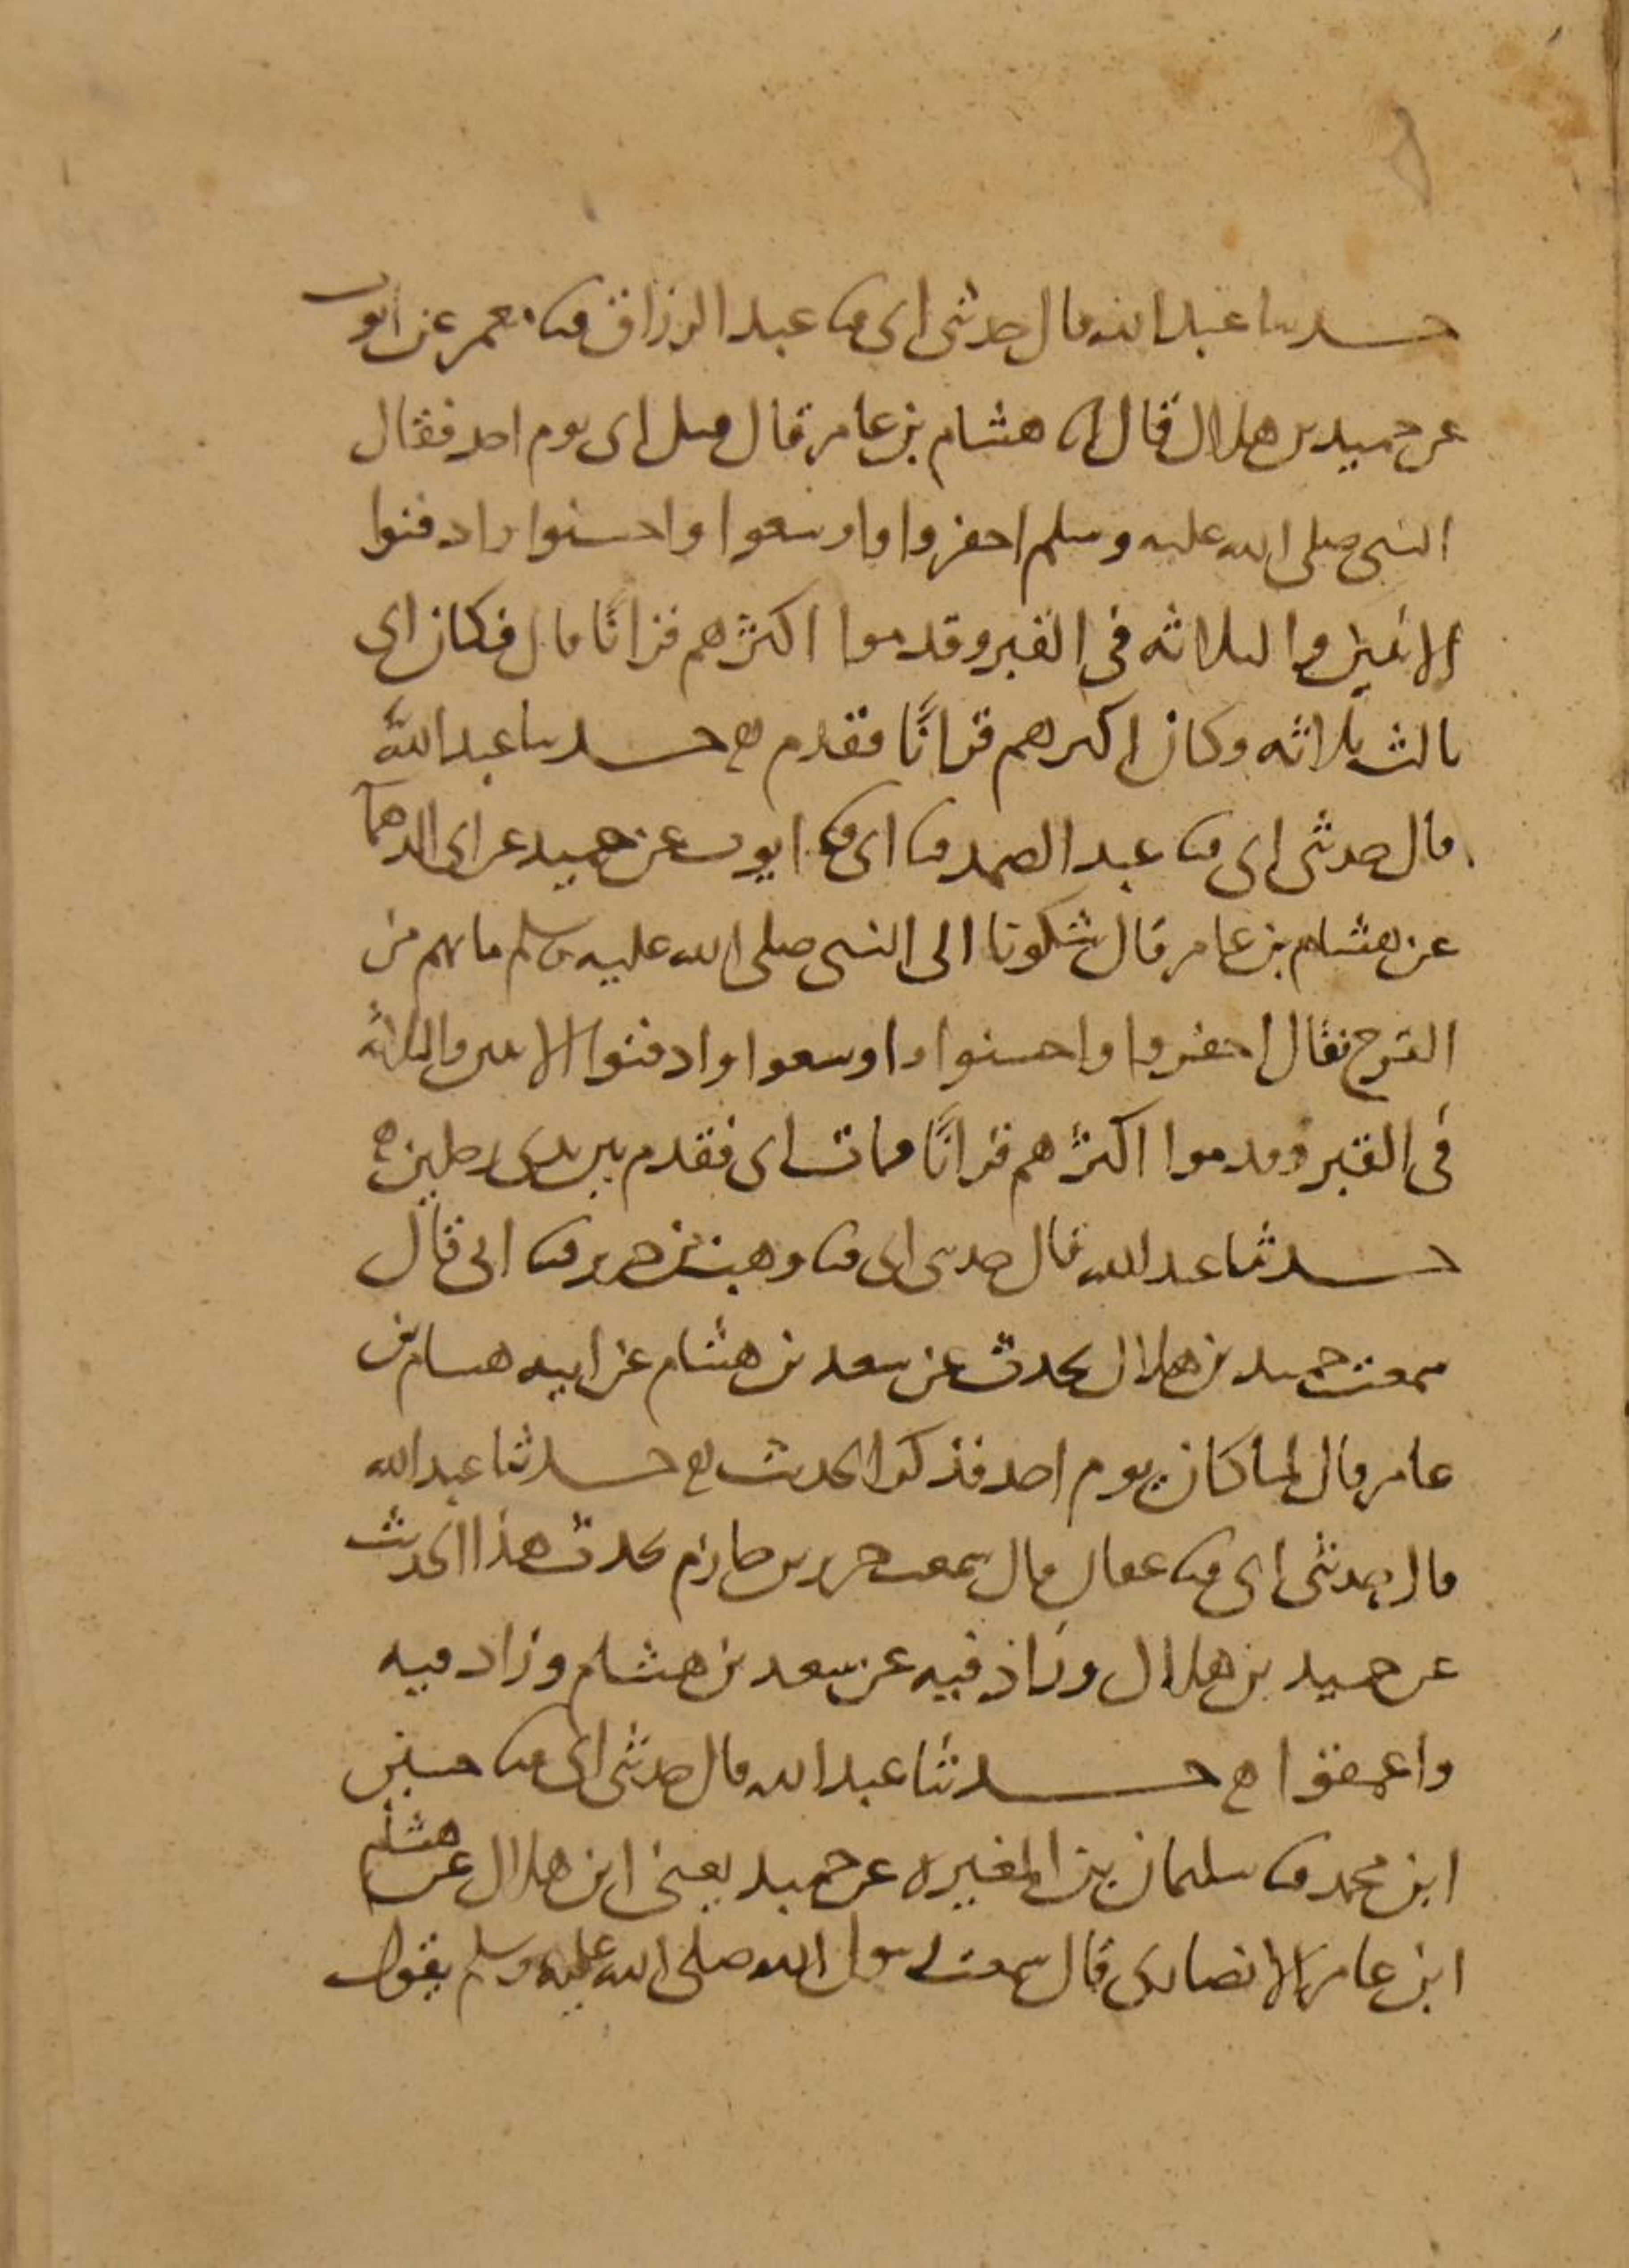 حدثنا عبد الله قال حدثني ابي ثنا عبد الرزاق ثنا معمر عن ايوب
عن حميد بن هلال قال انا هشام بن عامر قال قتل ابي يوم احد فقال
النبي صلى الله عليه وسلم احفروا واوسعوا واحسنوا وادفنوا
الاثنين والثلاثه في القبر وقدموا اكثرهم قرانًا قال فكان ابي
ثالث ثلاثه وكان اكثرهم قرانًا فقدم حدثنا عبد الله
قال حدثني ابي ثنا عبد الصمد ثنا ابي ثنا ايوب عن حميد عن ابي الدهما
عن هشام بن عامر قال شكونا الى النبي صلى الله عليه وسلم ما بهم من
القرح فقال احفروا واحسنوا واوسعوا وادفنوا الاثنين والثلاثه
في القبر وقدموا اكثرهم قرانًا فمات ابي فقدم بين يدي رجلين
حدثنا عبد الله قال حدثني ابي ثنا وهب بن جرير ثنا ابي قال
سمعت حميد بن هلال يحدث عن سعد بن هشام عن ابيه هشام بن
عامر قال لما كان يوم احد فذكر الحديث حدثنا عبد الله
قال حدثني ابي ثنا عفان قال سمعت جرير بن حازم يحدث هذا الحديث
عن حميد بن هلال وزاد فيه عن سعد بن هشام وزاد فيه
واعمقوا حدثنا عبد الله قال حدثني ابي ثنا حسين
ابن محمد ثنا سليمان بن المغيره عن حميد يعني ابن هلال عن هشام
ابن عامر الانصاري قال سمعت رسول الله صلى الله عليه وسلم يقول